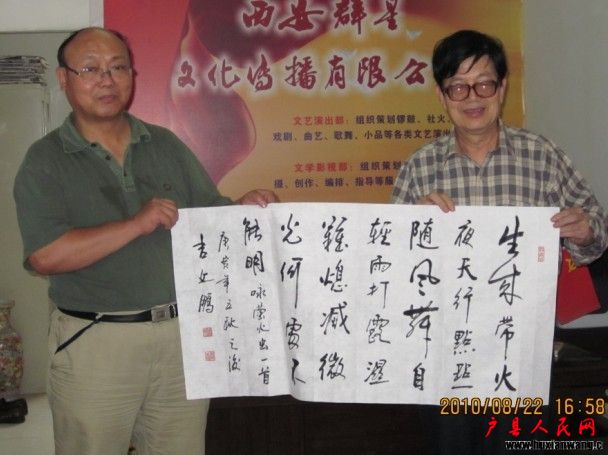 西安群星
文化传播有限公
文艺演出部：组织策划锣鼓、社火、
戏剧、曲艺、歌舞、小品等各类文艺演出
文学影视部：组织策划
摄、创作、编排、指导等服
生來帶火
夜天行點點
随風舞自
輕雨打露濕
難熄滅微
光何處不
能明 咏萤火虫一首
庚寅年立秋之後
2010/08/22 16:58
户县人民网
www.huxianwang.c